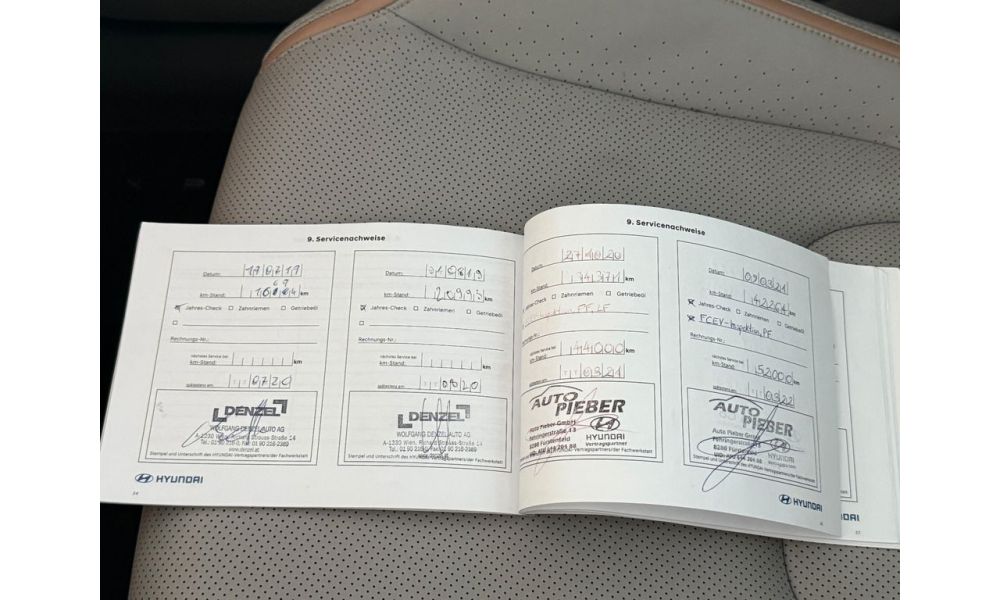 9. Servicenachweise
Datum: 170719
km-Stand: km
Jahres-Check Zahnriemen Getriebeöl
Rechnungs-Nr.:
nächstes Service bei
km-Stand: km
spätestens am: 0720
DENZEL
WOLFGANG DENZEL AUTO AG
A-1230 Wien, Richard Strauss-Straße 14
www.denzel.at
Stempel und Unterschrift des HYUNDAI-Vertragspartners/der Fachwerkstatt
HYUNDAI
34
Datum:
km-Stand: km
Jahres-Check Zahnriemen Getriebeöl
Rechnungs-Nr.:
nächstes Service bei
km-Stand: km
spätestens am:
DENZEL
WOLFGANG DENZEL AUTO AG
A-1230 Wien, Richard Strauss-Straße 14
Stempel und Unterschrift des HYUNDAI-Vertragspartners/der Fachwerkstatt
9. Servicenachweise
Datum: 271020
km-Stand: 34371 km
Jahres-Check Zahnriemen Getriebeöl
nächstes Service bei
km-Stand: 44000 km
spätestens am: 0321
AUTO
PIEBER
Auto Pieber GmbH
Fehringerstraße 13
8280 Fürstenfeld
HYUNDAI
Vertragspartner
HYUNDAI-Vertragspartners/der Fachwerkstatt
Datum: 090321
km-Stand: 42264 km
Jahres-Check Zahnriemen Getriebeöl
FCEV-Inspektion, PF
Rechnungs-Nr.:
nächstes Service bei
km-Stand: 52000 km
spätestens am: 0322
AUTO
PIEBER
Auto Pieber GmbH
8280 Fürstenfeld
HYUNDAI
Vertragspartner
Stempel und Unterschrift des HYUNDAI-Vertragspartners/der Fachwerkstatt
HYUNDAI
37